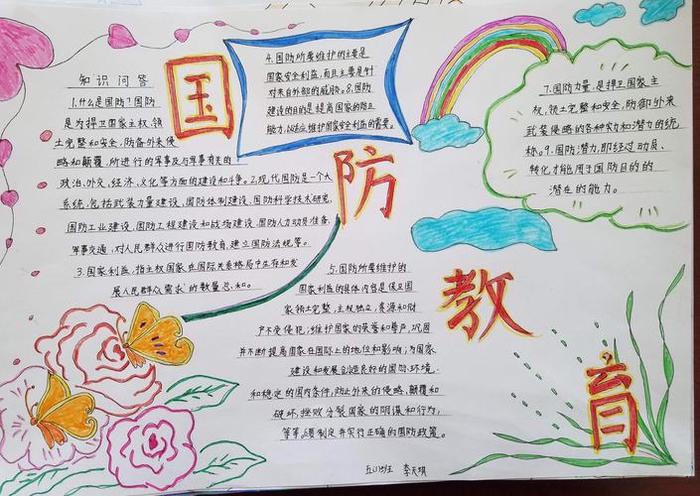 国
防
教
育
知识问答
1.什么是国防?国防
是为捍卫国家主权、领
土完整和安全,防备外来侵
略和颠覆,所进行的军事及与军事有关的
政治、外交、经济、文化等方面的建设和斗争。2.现代国防是一个大
系统,包括武装力量建设,国防体制建设,国防科学技术研究,
国防工业建设,国防工程建设和战场建设,国防人力动员准备,
军事交通,对人民群众进行国防教育,建立国防法规等。
3.国家利益,指主权国家在国际关系格局中生存和发
展人民群众需求的数量总和。
4.国防所要维护的主要是
国家安全利益,而且主要是针
对来自外部的威胁。8.国防
建设的目的是提高国家的防卫
能力,以适应维护国家安全利益的需要。
5.国防所要维护的
国家利益的具体内容是保卫国
家领土完整,主权独立,资源和财
产不受侵犯;维护国家的荣誉和尊严,巩固
并不断提高国家在国际上的地位和影响;为国家
建设和发展创造良好的国际环境
和稳定的国内条件;防止外来的侵略、颠覆和
破坏,挫败分裂国家的阴谋和行为,
等等,须制定并实行正确的国防政策。
7.国防力量,是捍卫国家主
权,领土完整和安全,防御外来
武装侵略的各种实力和潜力的统
称。9.国防潜力,即经过动员、
转化才能用于国防目的的
潜在的能力。
五(1)班 李天琪